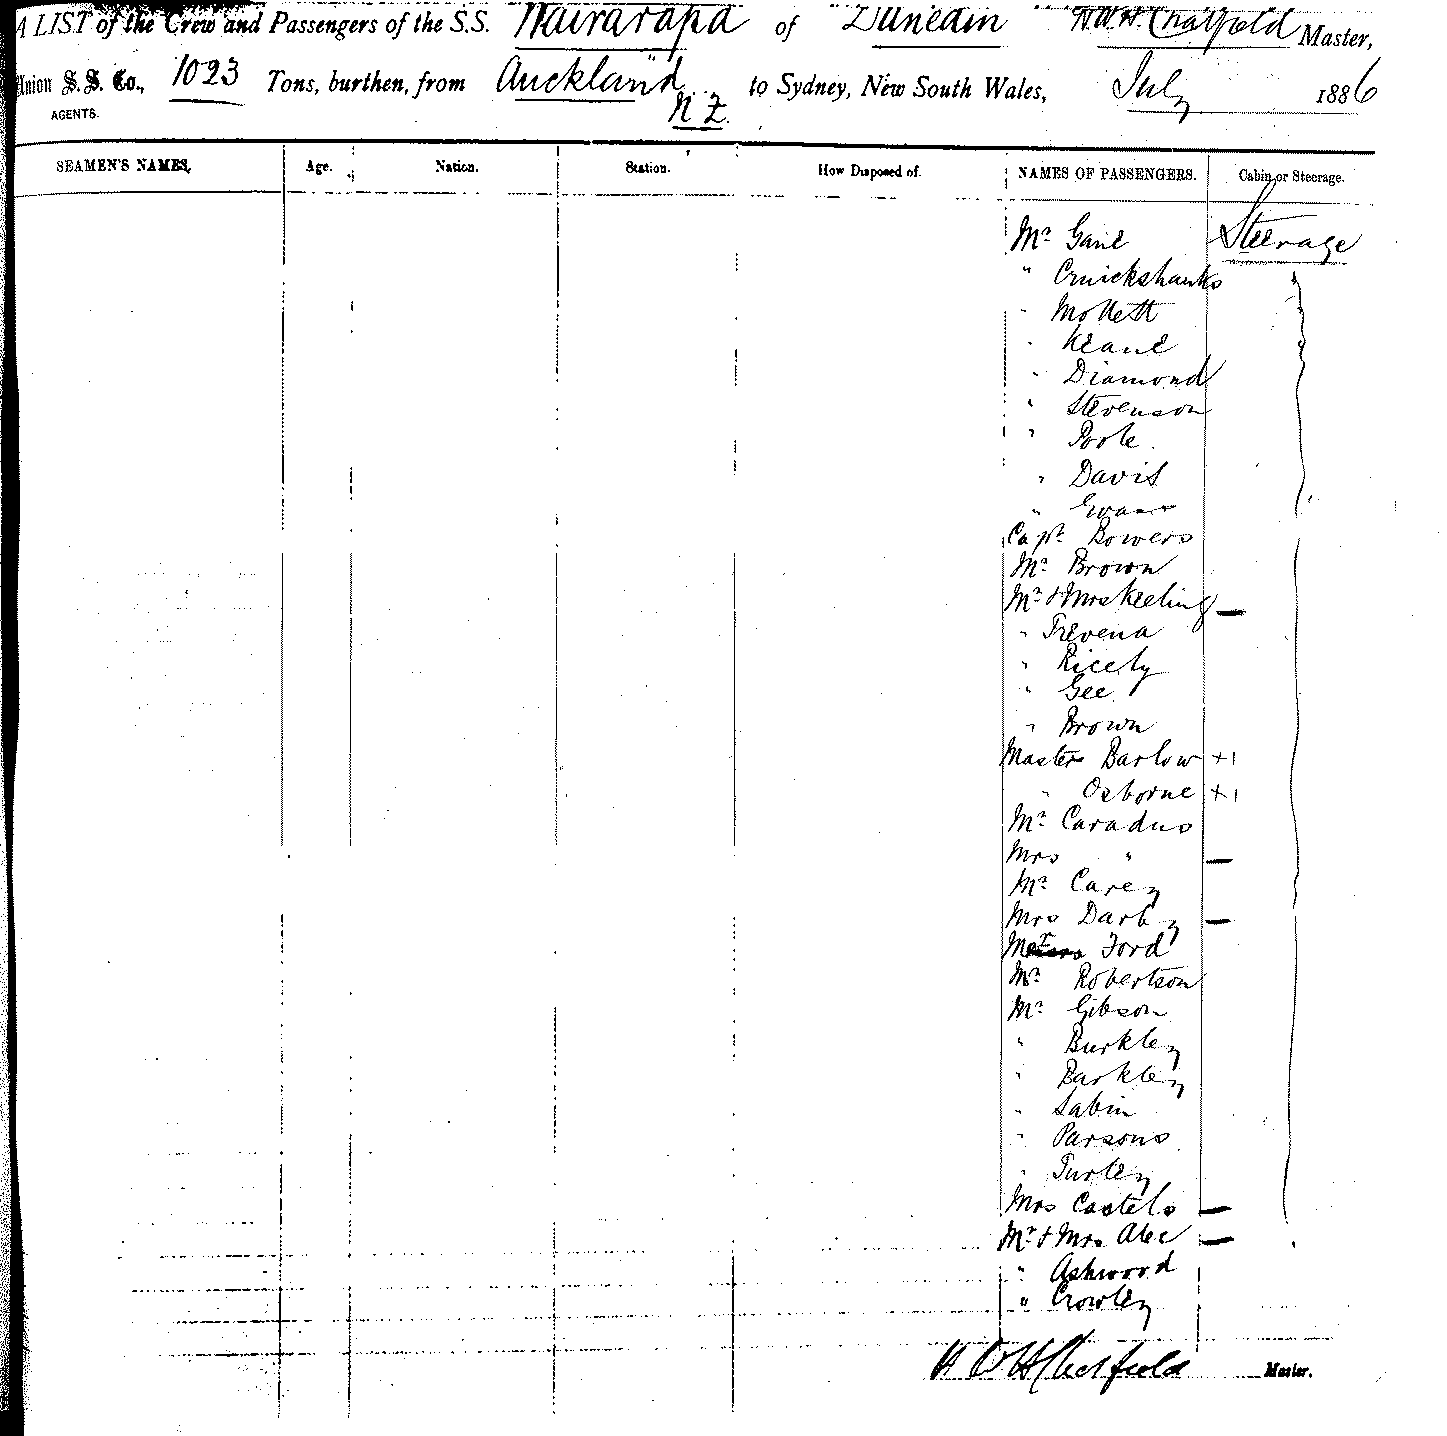 A LIST of the Crew and Passengers of the S.S. Wairarapa of Dunedin Chatfield Master,
Union S. S. Co., 1023 Tons, burthen, from Auckland to Sydney, New South Wales, July 1886
AGENTS. N Z.
SEAMEN'S NAMES, Age. Nation. Station. How Disposed of. NAMES OF PASSENGERS. Cabin or Steerage.
Mr Steerage
" Cruickshanks
" Mollett
" Keane
" Diamond
" Stevenson
" Poole
" Davis
" Evans
Capt. Bowers
Mr Brown
Mr & Mrs Keeling —
" Trevena
" Ricely
" Gee
" Brown
Master Barlow +1
" Osborne +1
Mr Caradus
Mrs " —
Mr Carey
Mrs Darby —
Mr Ford
Mr Robertson
Mr Gibson
" Burkley
" Barkley
" Sabin
" Parsons
" Turley
Mrs Castels —
Mr & Mrs Alec —
" Ashwood
" Crowley
Chatfield Master.